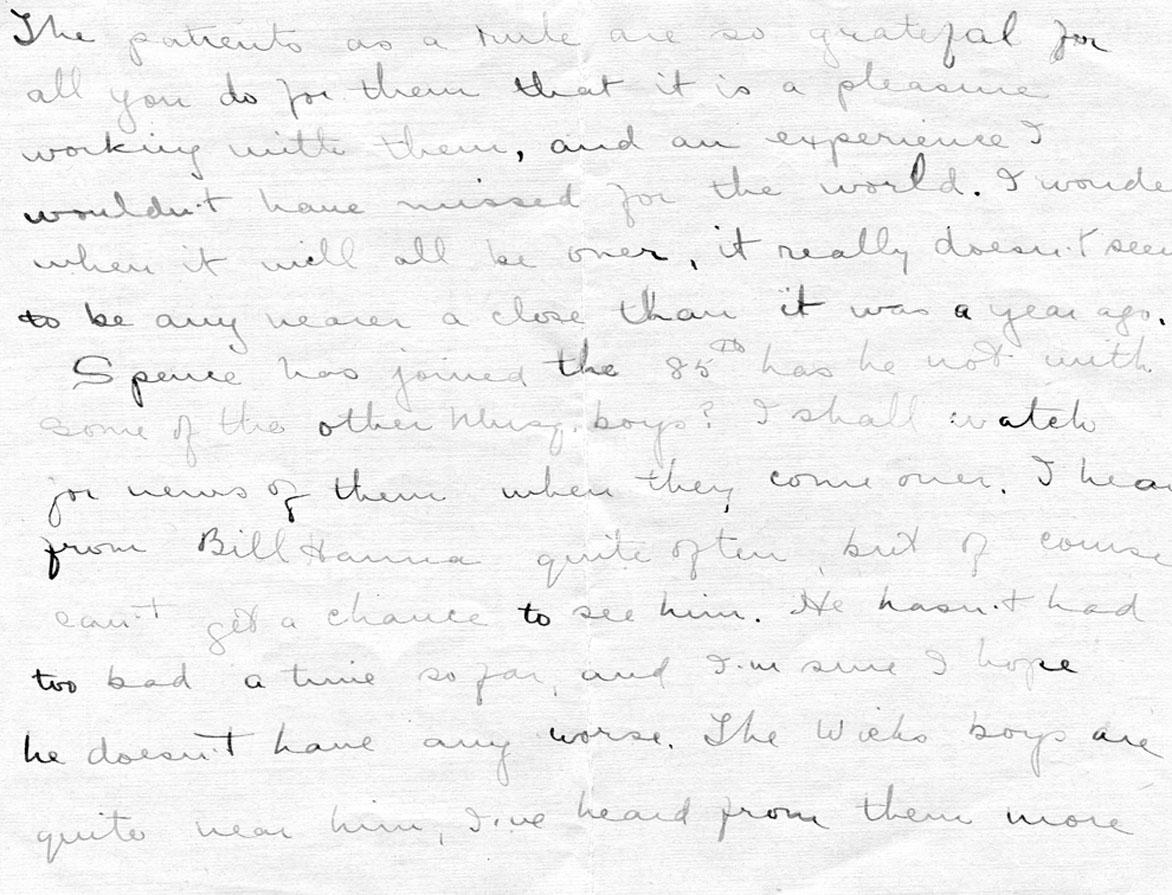 The patients as a rule are so grateful for
all you do for them that it is a pleasure
working with them, and an experience I
wouldn't have missed for the world. I wonde
when it will all be over, it really doesn't see
to be any nearer a close than it was a year ago.
Spence has joined the 85th has he not with
some of the other Musq. boys? I shall watch
for news of them when they come over. I hear
from Bill Hanna quite often, but of course
can't get a chance to see him. He hasn't had
too bad a time so far, and I'm sure I hope
he doesn't have any worse. The Wicks boys are
quite near him, I've heard from them more